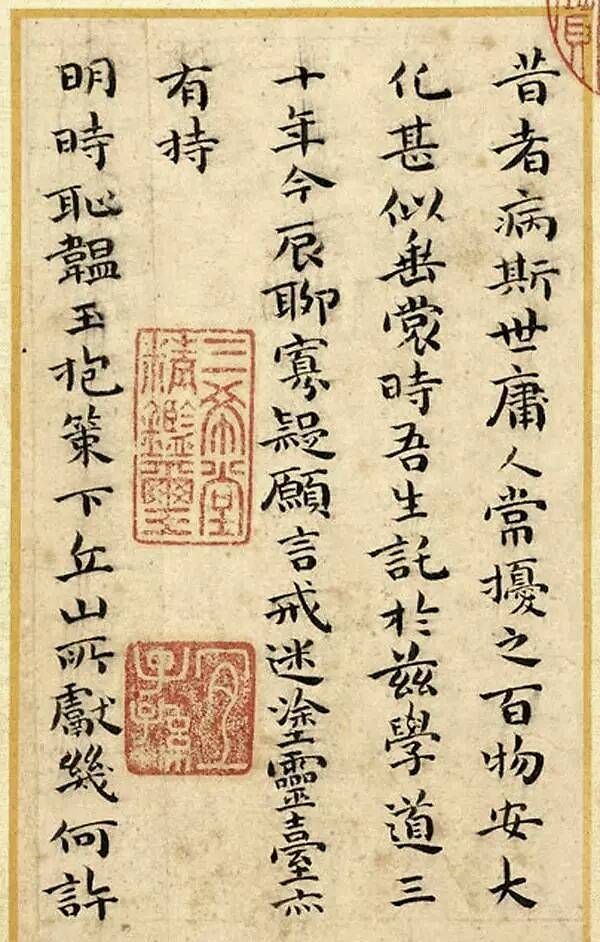 昔者病斯世庸人常擾之百物安大
化甚似垂裳時吾生託於茲學道三
十年今辰聊寡疑願言戒迷塗靈臺亦
有持
三希堂
精鑑璽
宜
子孫
明時恥韞玉抱策下丘山所獻幾何許